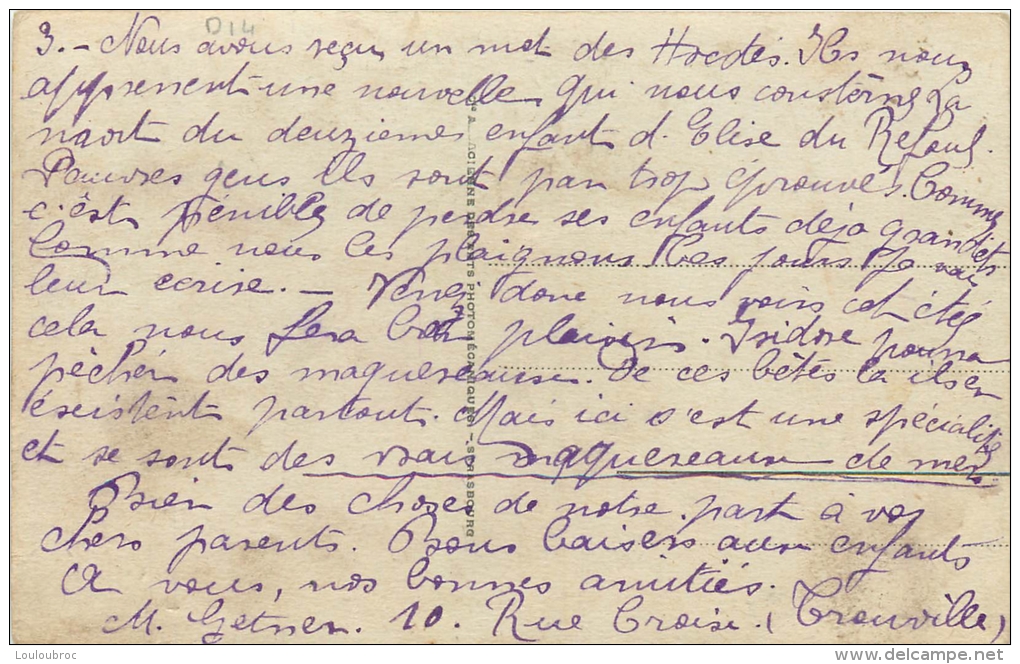 D14
3. - Nous avons reçu un mot des Ils nous
apprennent une nouvelle qui nous consterne La
mort du deuzieme enfant d'Elise du Refoul.
Pauvres gens Ils sont par trop éprouvés. Comme
c'est pénible de perdre ses enfants déja grandets
Comme nous les plaignons Ces jours Je vai
leur ecrire. - Venez donc nous voir cet été
cela nous fera bon plaisir. Isidore pourra
pêcher des maquereaux. De ces bêtes la il s'en
éxistent partout. Mais ici s'est une spécialité
et se sont des vrais maquereaux de mer.
Bien des choses de notre part à vos
chers parents. Bons baisers aux enfants
A vous, nos bonnes amitiés.
M. Getner. 10. Rue Croix. (Trouville)
Cie A ACIENNE DES ARTS PHOTOMÉCANIQUES - STRASBOURG
Louloubroc
www.delcampe.net